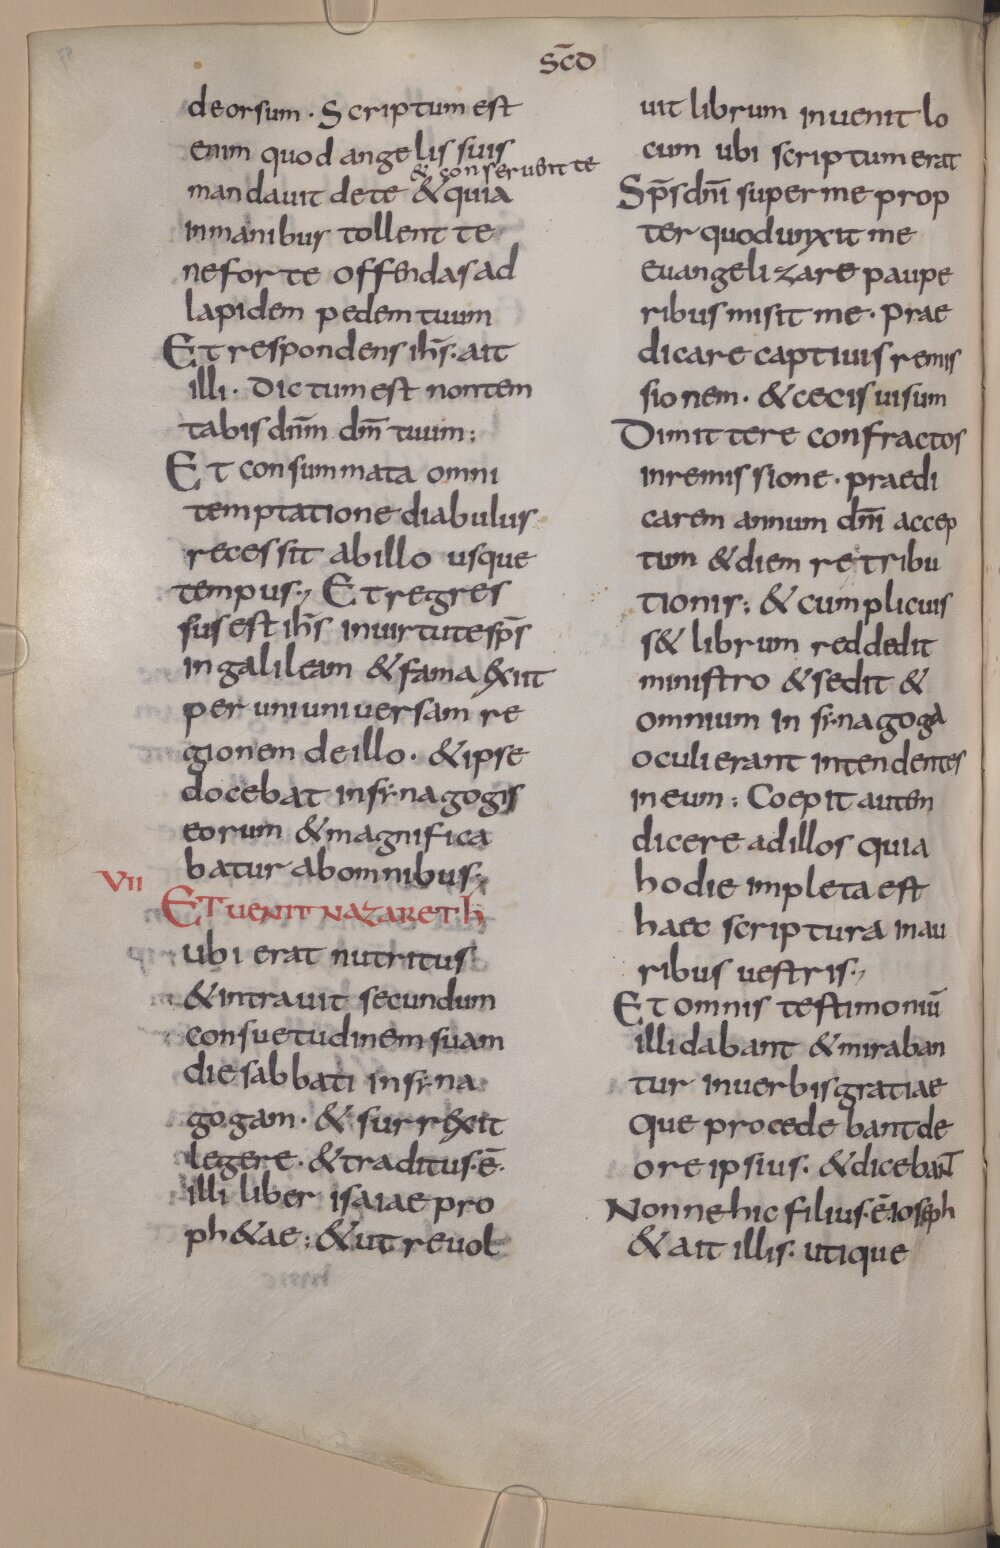 SC̄D
deorsum · Scriptum est
enim quod angelis suis
& conseruent te
mandauit dete & quia
inmanibus tollent te
neforte offendas ad
lapidem pedem tuum
Et respondens ih̄s · ait
illi · Dictum est nontem
tabis dn̄m dm̄ tuum ;
Et consummata omni
temptatione diabulus
recessit abillo usque
tempus ;, Et regres
sus est ih̄s inuirtute sp̄s
in galileam & fama exiit
per uniuniuersam re
gionem deillo · & ipse
docebat insinagogis
eorum & magnifica
batur abomnibus ;,
VII
ET UENIT NAZARETh
ubi erat nutritus
& intrauit secundum
consuetudinem suam
die sabbati insina
gogam · & surrexit
legere · & traditus · ē ·
illi liber isaiae pro
ph&ae ; & ut reuol
uit librum inuenit lo
cum ubi scriptum erat
Sp̄s dn̄i super me prop
ter quod unxit me
euangelizare paupe
ribus misit me · Prae
dicare captiuis remis
sionem · & cecis uisum
Dimittere confractos
inremissione · praedi
carem annum dn̄i accep
tum & diem retribu
tionis ; & cum plicuis
s& librum reddedit
ministro & sedit &
omnium in sinagoga
oculi erant intendentes
in eum ; Coepit autem
dicere ad illos quia
hodie impleta est
haec scriptura inau
ribus uestris ;,
Et omnis testimoniū
illi dabant & miraban
tur inuerbis gratiae
Que procedebant de
ore ipsius · & dicebant
Nonne hic filius · ē · ioseph
& ait illis · utique